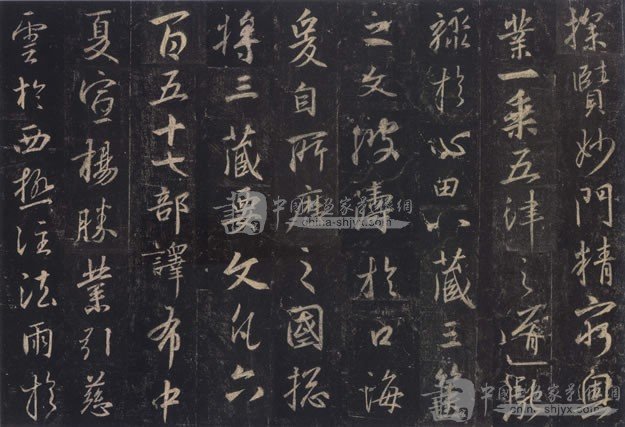 探賾妙門精窮奧
業一乘五律之道馳
驟於心田八藏三篋
之文波濤於口海
爰自所歷之國總
將三藏要文凡六
百五十七部譯布中
夏宣揚勝業引慈
雲於西極注法雨於
china-shjyx.com
china-shjyx.com